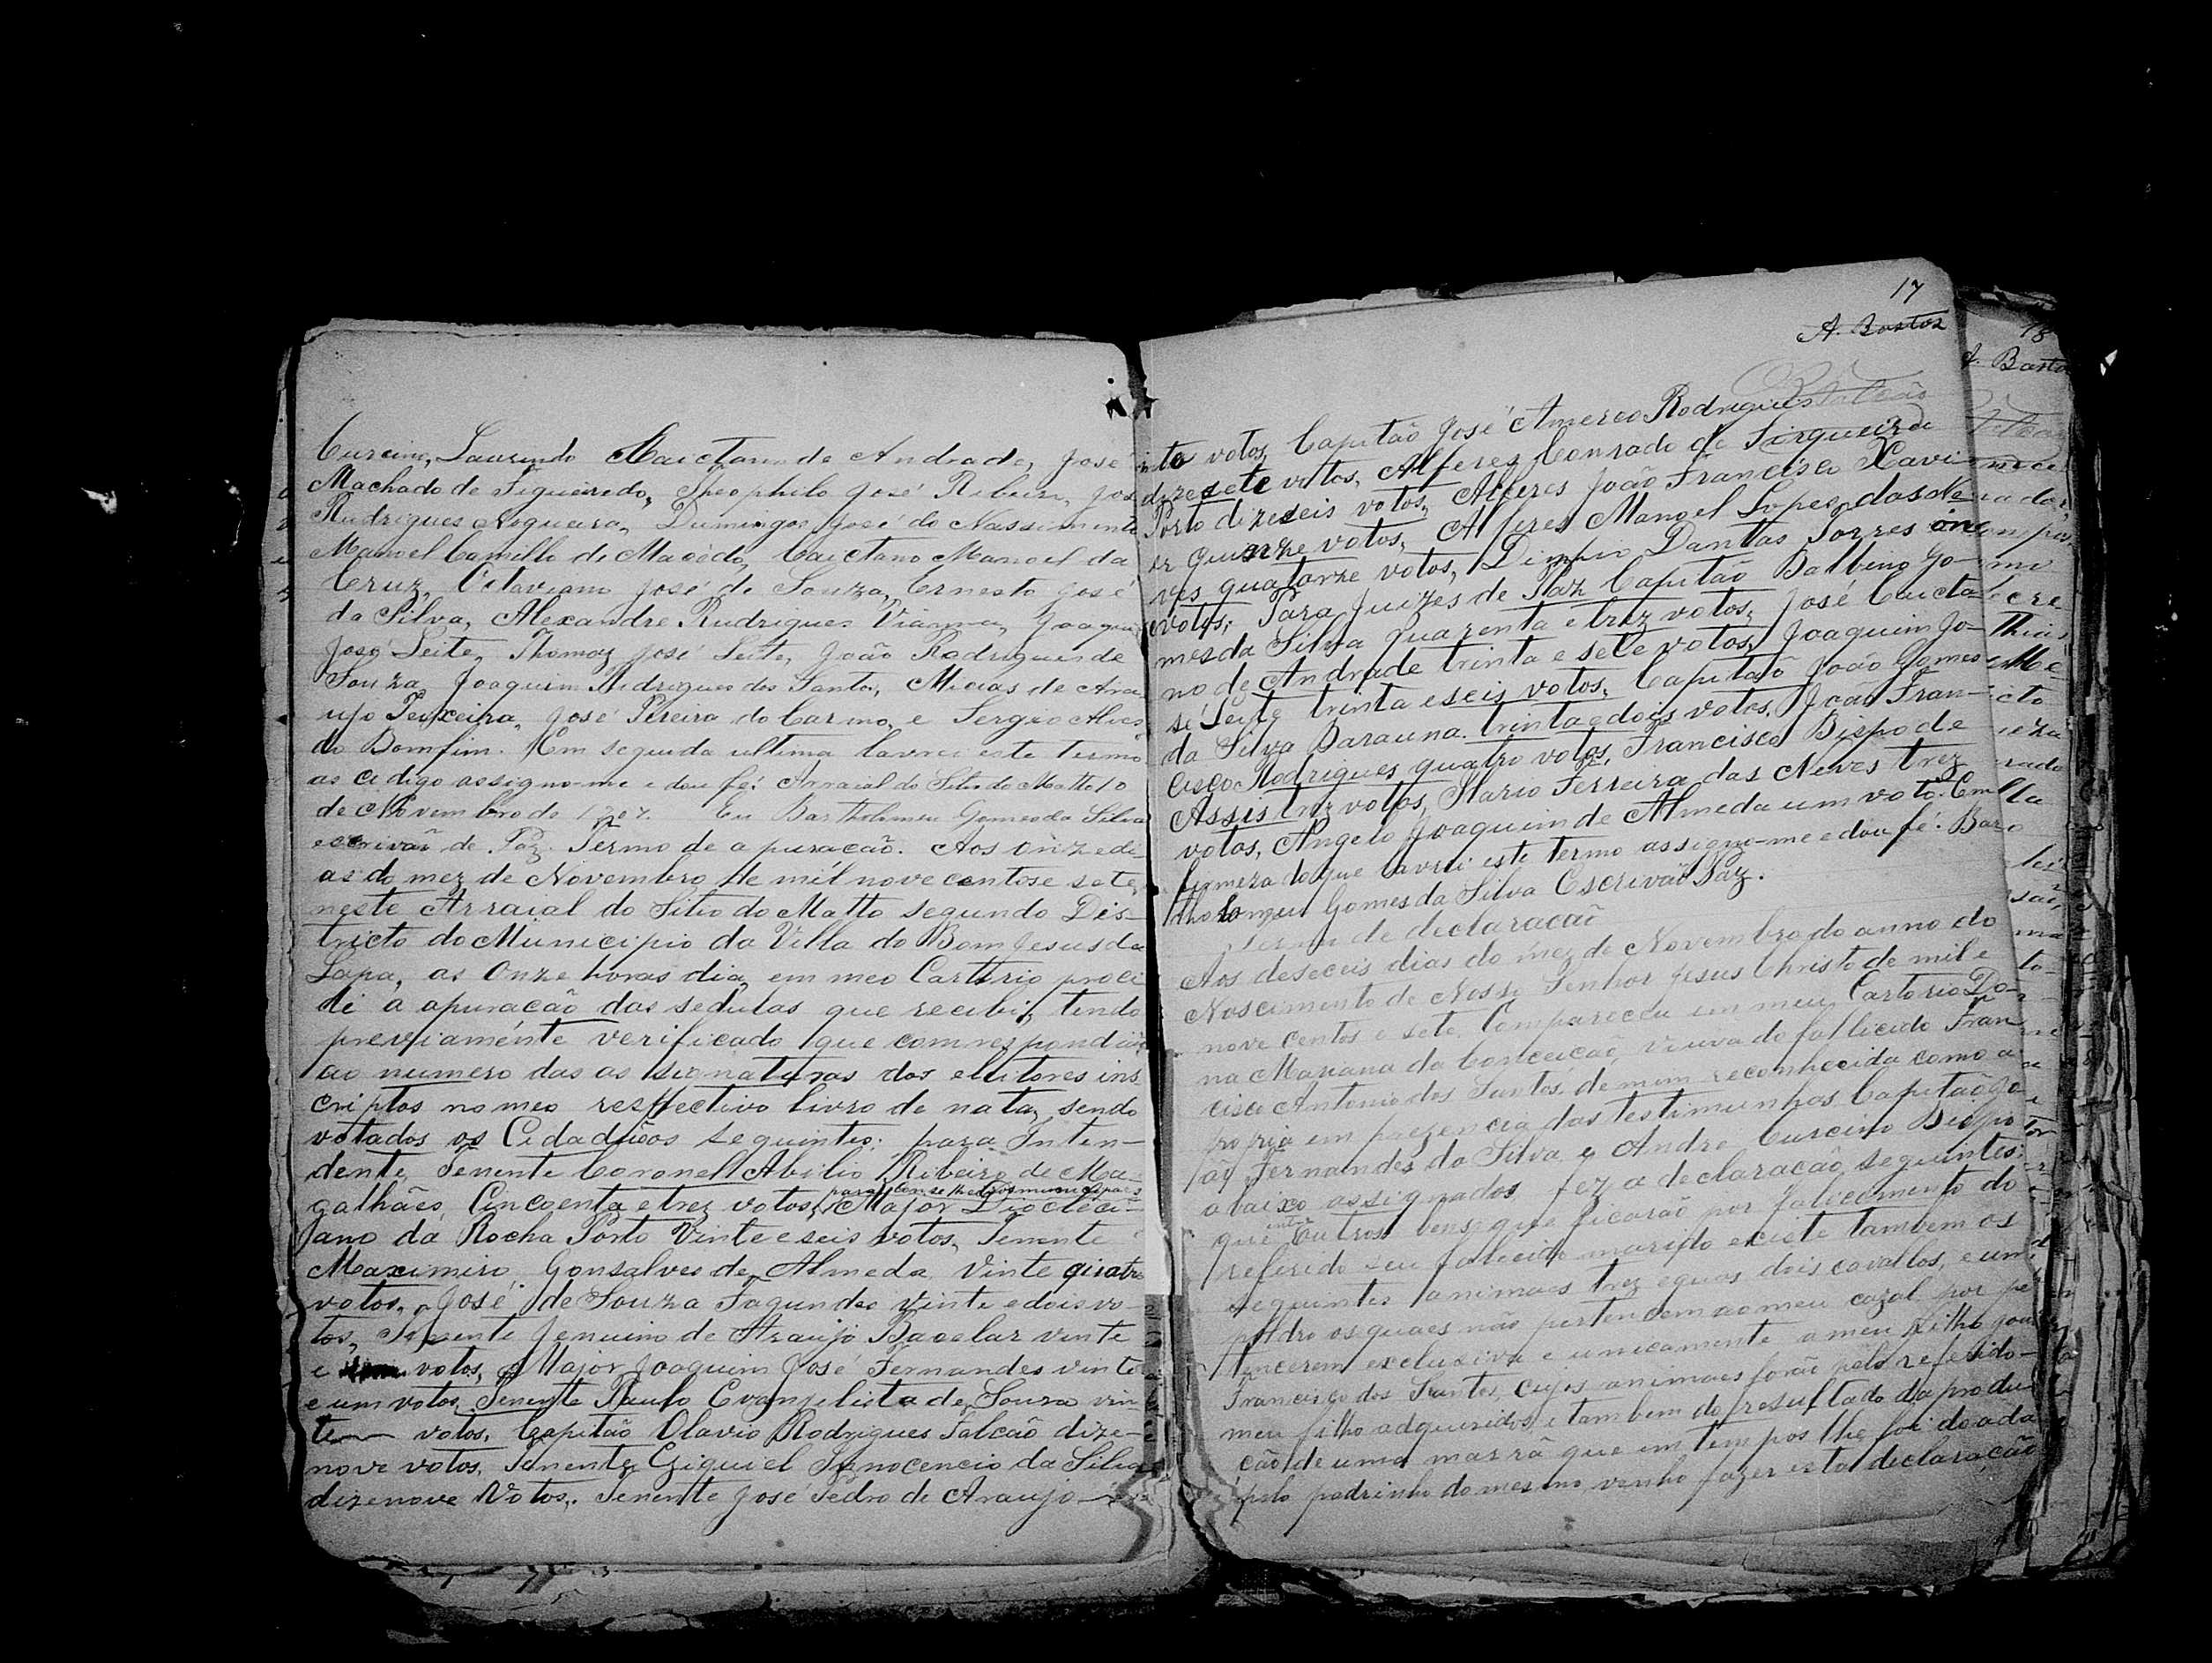 Curcino, Laurindo Caietano de Andrade, José
Machado de Figueiredo, Theophilo José Ribeiro, Jos
Rudrigues Nogueira, Dumingos José do Nassimento
Manoel Camillo de Macêdo, Caietano Manoel da
Cruz, Octaviano José de Souza, Ernesto José
da Silva, Alexandre Rudrigues Vianna, Joaquim
José Leite, Thomaz José Leite, João Rodrigues de
Souza Joaquim Rudrigues dos Santos, Micias de Ara
ujo Teixeira, José Pereira do Carmo, e Sergio Alves
do Bomfim. Em seguida ultima lavrei este termo
as digo assigno-me e dou fé. Arraial do Sitio do Matto 10
de Novembro de 1907. Eu Bartholomeu Gomes da Silva
escrivão de Paz. Termo de apuracão. Aos onze di
as do mez de Novembro de mil nove centos e sete,
neste Arraial do Sitio do Matto segundo Dis-
tricto do Municipio da Villa do Bom Jesus da
Lapa, as Onze horas dia, em meo Carttrio proce
di a apuracão das sedulas que recebi, tendo
previamente verificado que comrespondia
ao numero das assignaturas dos elitores ins
criptos no meo respectivo livro de nata, sendo
votados os Cidadãos seguintes: para Inten-
dente, Tenente Coronel Abilio Ribeiro de Ma-
galhães, Cincoenta e trez votos, para Conselheiros municipaes Major Diocleci-
ano da Rocha Porto Vinte e seis votos, Tenente
Maximiro Gonsalves de Almeda Vinte quatro
votos, José de Souza Fagundes Vinte e dois vo-
tos, Tenente Jenuino de Araujo Bacelar vinte
e votos, Major Joaquim José Fernandes vinte
e um votos, Tenente Paulo Evangelista de Souza vin
te votos, Capitão Olavio Rodrigues Falcão dize-
nove votos, Tenente Eziquiel Innocencio da Silva
dizenove Votos, Tenente José Pedro de Araujo
17
A. Bastos
nto votos, Capitão José Amereo Rodrigues
dizesete votos, Alferes Conrado de Sirqueira
Porto dizeseis votos, Alferes João Francisco Xavi-
er quinze votos, Alferes Manoel Lopes das Ne
ves quatorze votos, Dantas Torres onc
votos; Para Juizes de Paz Capitão Balbino Go-
mes da Silva quarenta e trez votos, José Caieta
no de Andrade trinta e sete votos, Joaquim Jo-
sé Leite trinta e seis votos, Capitão João Gomes
da Silva Barauna trinta e dois votos, João Fran-
cisco Rodrigues quatro votos, Francisco Bispo de
Assis trez votos, Mario Ferreira das Neves trez
votos, Angelo Joaquim de Almeda um voto. Em
firmeza do que lavrei este termo assigno-me e dou fé. Bar
tholomeu Gomes da Silva Escrivão Paz.
Termo de declaracão
Aos deseceis dias do mez de Novembro do anno do
Nascimento de Nosso Senhor Jesus Christo de mil e
nove centos e sete. Compareceu em meu Cartorio Do-
na Mariana da Conceicão, viuva do fallicido Fran
cisco Antonio dos Santos, de mim reconhecida como a
propria em prezencia das testimunhas Capitão Jo-
ão Fernandes da Silva e Andre Curcino Bispo
abaixo assignados fez a declaracão, seguintes:
que entre outros bens que ficarão por falecimento do
referido seu falicido marido existe tambem os
seguintes animaes trez eguas dois cavallos, e um
poldro os quaes não pertencem ao meu cazal por pe
tencerem exclusiva e unicamente a meu filho João
Francisco dos Santos, cujos animaes forão pelo referido
meu filho adqueridos, e tambem do resultado da produ
cão de uma marrã que em tempos lhe foi doada
pelo padrinho do mesmo, venho fazer esta declaração
18
A. Basto